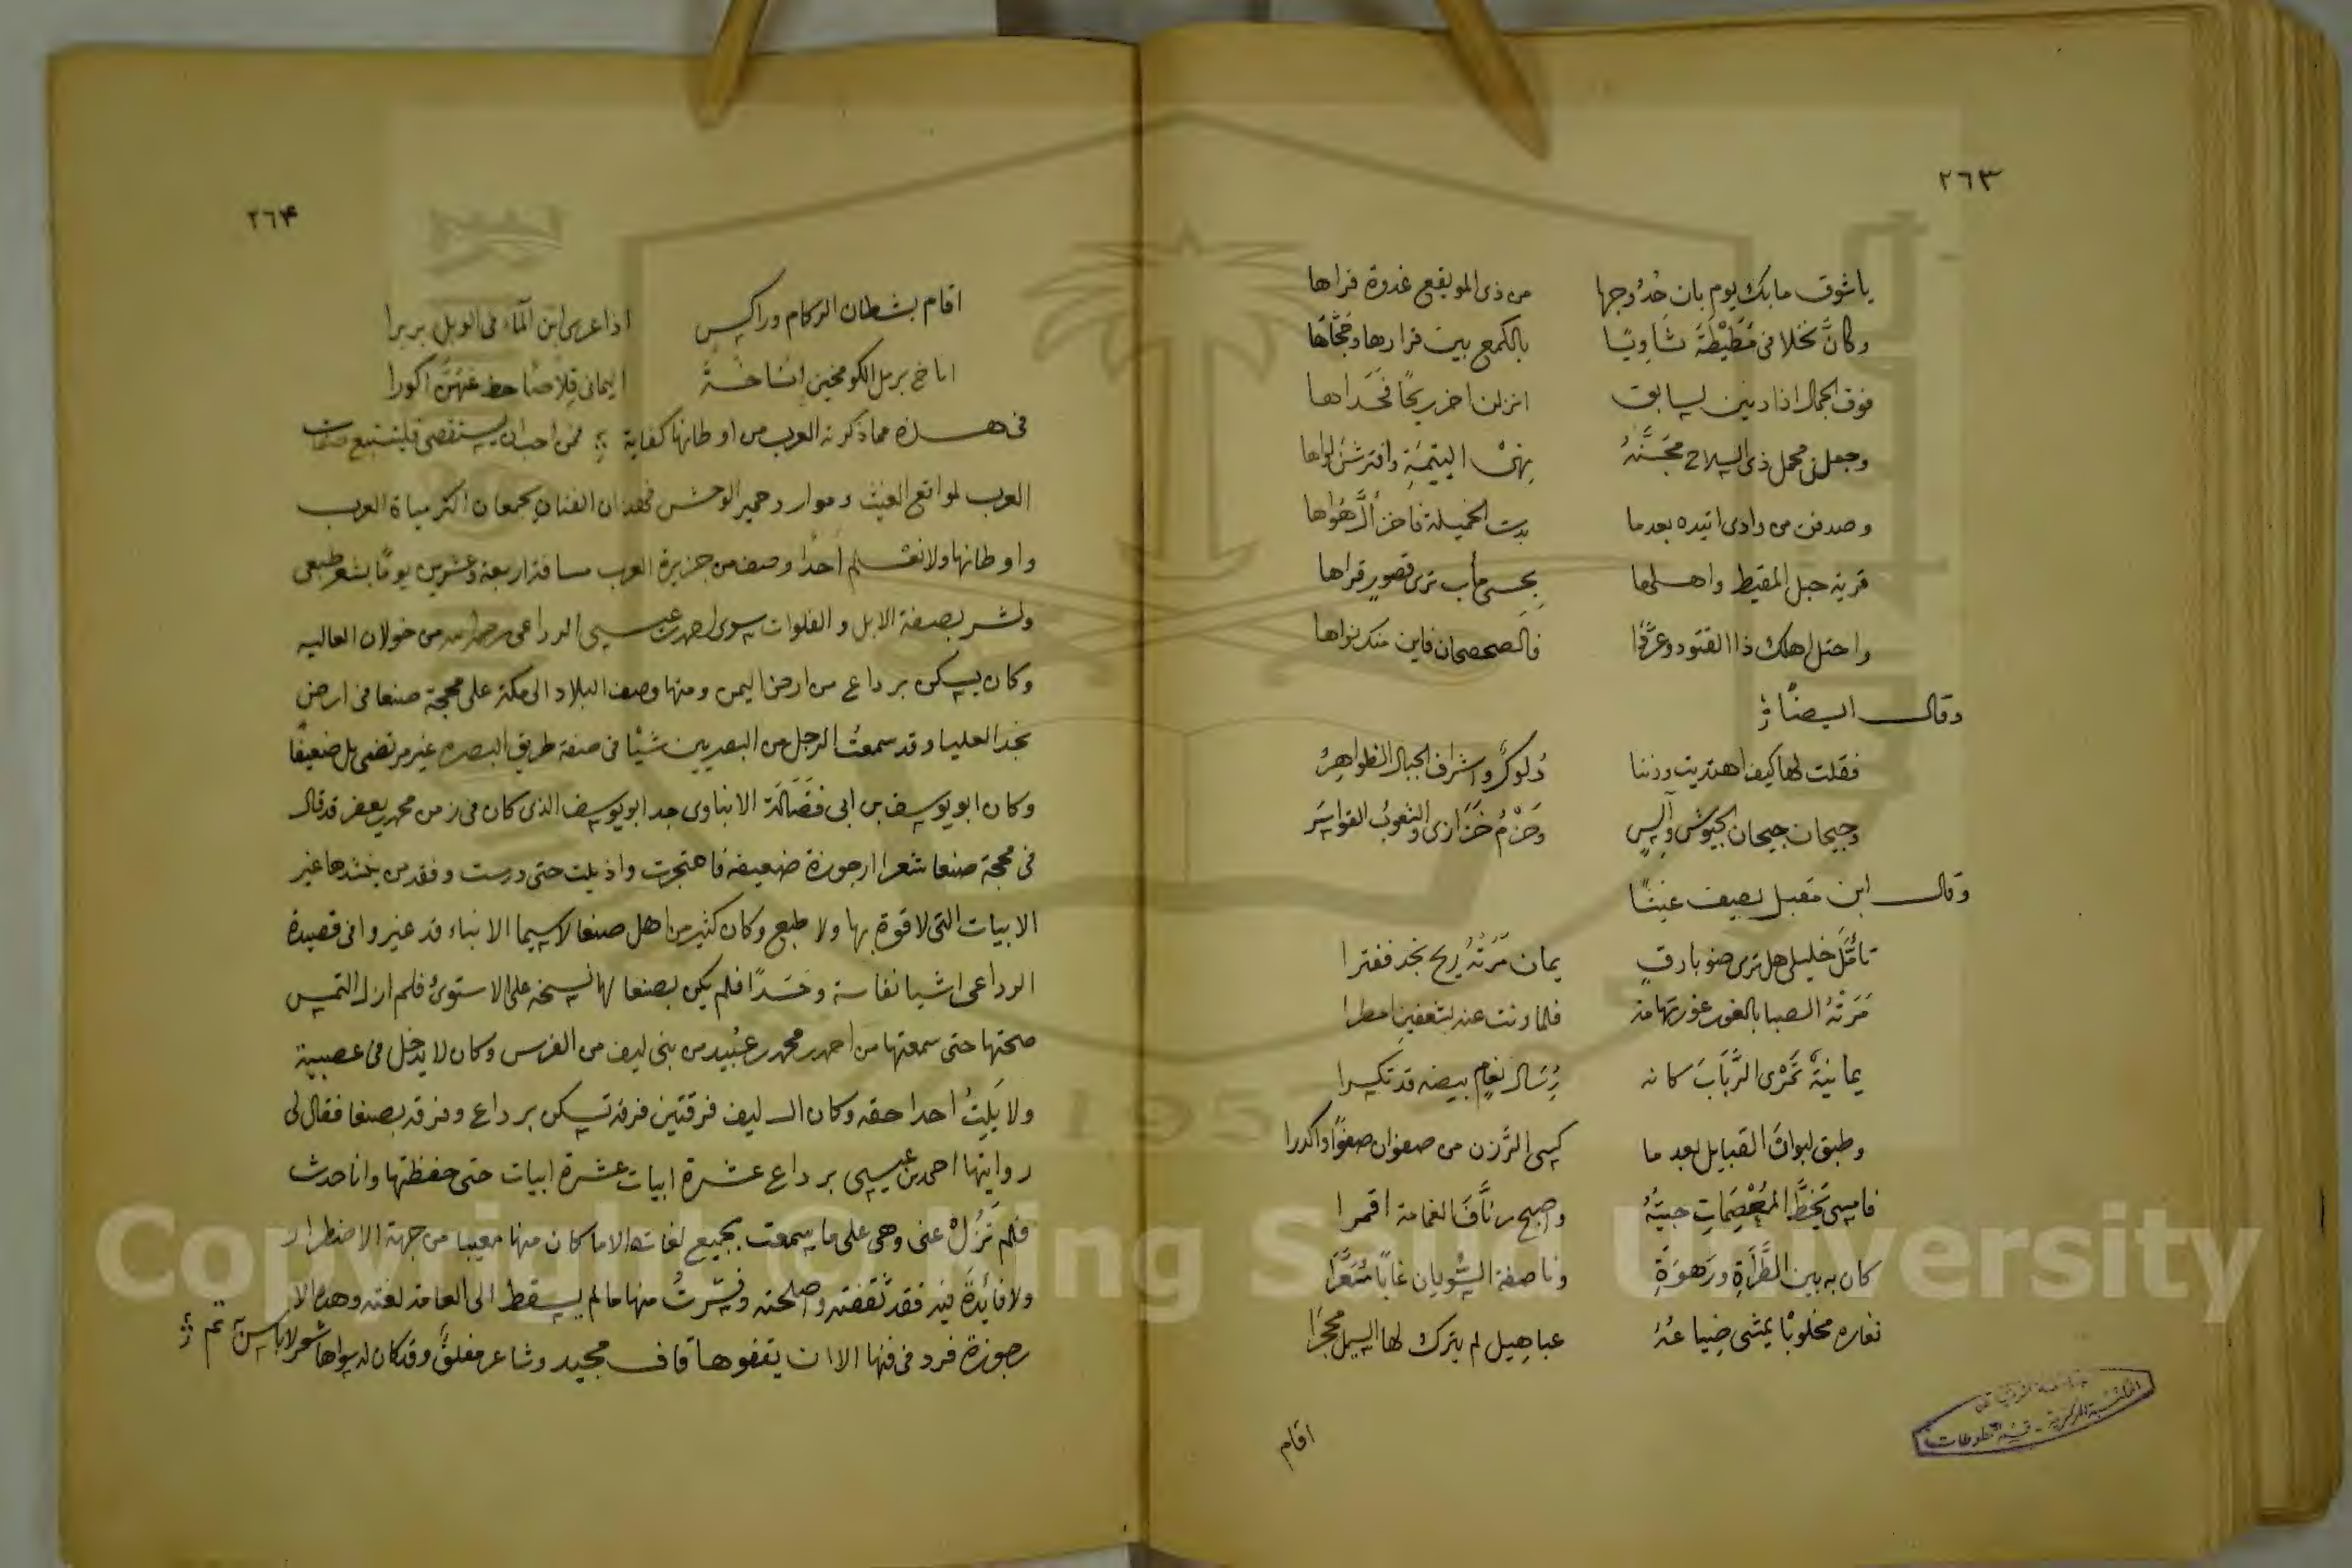 ٢٦٣
يا شوق ما بك يوم بان حُدُوجها من ذى المويقع غدوة فراها
وكانَّ نخلا فى مَطَيْطَةَ ثَاوِيًا بالكمع بين قرارها وحَجَّاهَا
فوق الجمال اذا دنين لسابق انزلن اخر ريحًا فحداها
وجعلن محمل ذى السلاح مجَنَّهُ اليتيمة وافترشن لواها
وصدفن من وادى اتيده بعدما بدت الخميلة فاحزألَّ صُواها
قرية حبل المقيظ واهلها بحسى مأب ترى قصور قراها
واحتل اهلك ذا القتود وغُرَّبًا فالصحصحان فاين منك نواها
وقال ايضًا
فقلت لها كيف اهتديت ودننا دُلوكٌ واشراف الجبال الظواهِرُ
وجيحان جيحان الجيوش وآلِسٍ وحَزْمُ خَزَازى والشعوبُ القواسِرَ
وقال ابن مقبل يصف غيثًا
تأمَّل خليلى هل ترى ضو بارقٍ يمان مَرَتْهُ ريح نجد ففترا
مَرَتْهُ الصبا بالغور غور تهامة فلما ونت عنه بشعفين امطرا
يمانيةٌ تَمْرى الرَّبَابَ كانه رِئال نعامٍ بيضه قد تكسرا
وطبق لبوان القبايل بعد ما كسى الرَّزن من صفوان صفوًا واكدرا
فامسى يَحُطُّ المُعْصِمَاتِ حبيَّهُ واصبح زنَّافَ الغمامة اقمرا
كان به بين الطَّرَاةِ ورَهوَةٍ وناصفة السُّوبان غابًا مُسَعَّرا
فغاره مخلوبًا يمشى ضِياعُهُ عباهيل لم يترك لها السيل محجرا
اقام
٢٦٤
اقام بشطان الركام وراكس اذا غرق ابن الماء فى الوبل بربرا
اناخ برمل الكومحين اناخةَ اليمانى قِلاصًا حط عنهنَّ اكورا
فى هذه مما ذكرته العرب من اوطانها كفاية فمن احب ان يستقصى فليتتبع صفات
العرب لمواقع الغيث وموارد حمير الوحش فهذان الفنان يجمعان اكثر مياة العرب
واوطانها ولا نعلم احدًا وصف من جزيرة العرب مسافة اربعة وعشرين يومًا بشعر طبعى
ونشر بصفة الابل والفلوات سوى احمد بن عيسى الرداعى رحمه الله من خولان العاليه
وكان يسكن برداع من ارض اليمن ومنها وصف البلاد الى مكة على محجة صنعا فى ارض
نجد العليا وقد سمعتُ الرجل من البصريين شيئًا فى صفة طريق البصره غير مرتضى بل ضعيفًا
وكان ابو يوسف بن ابى فضَالَة الابناوى جد ابو يوسف الذى كان فى زمن محمد يعفر قد قال
فى محجة صنعا شعرا ارجوزة ضعيفه فاهتجرت واذيلت حتى درست وفقد من ينشدها غير
الابيات التى لا قوة بها ولا طبع وكان كثير من اهل صنعا لاسيما الابناء قد غيروا فى قصيدة
الرداعى اشيا نفاسة وحَسَدًا فلم يكن بصنعا لها نسخه على الاستوئ فلم ازل التمس
صحتها حتى سمعتها من احمد بن محمد بن عُبيد من بنى ليف من الفرس وكان لا يدخل فى عصبية
ولا يَلِتُ احدا حقه وكان ال ليف فرقتين فرقة تسكن برداع وفرقة بصنعا فقال لى
روايتها احمد بن عيسى برداع عشرة ابيات عشرة ابيات حتى حفظتها وانا حدث
فلم تَزُلْ عنى وهى على ما سمعت بجميع لغاته الا ما كان منها معيبا من جهة الاضطرار
ولا فائدَة فيه فقد ثقفته واصلحته وفسَّرتُ منها ما لم يسقط الى العامة لغته وهذه الا
رجوزة فرد فى فنها الا ان يقفوها قاف مجيد وشاعر مفلقٌ وقد كان له سواها شعر لاباس به تم